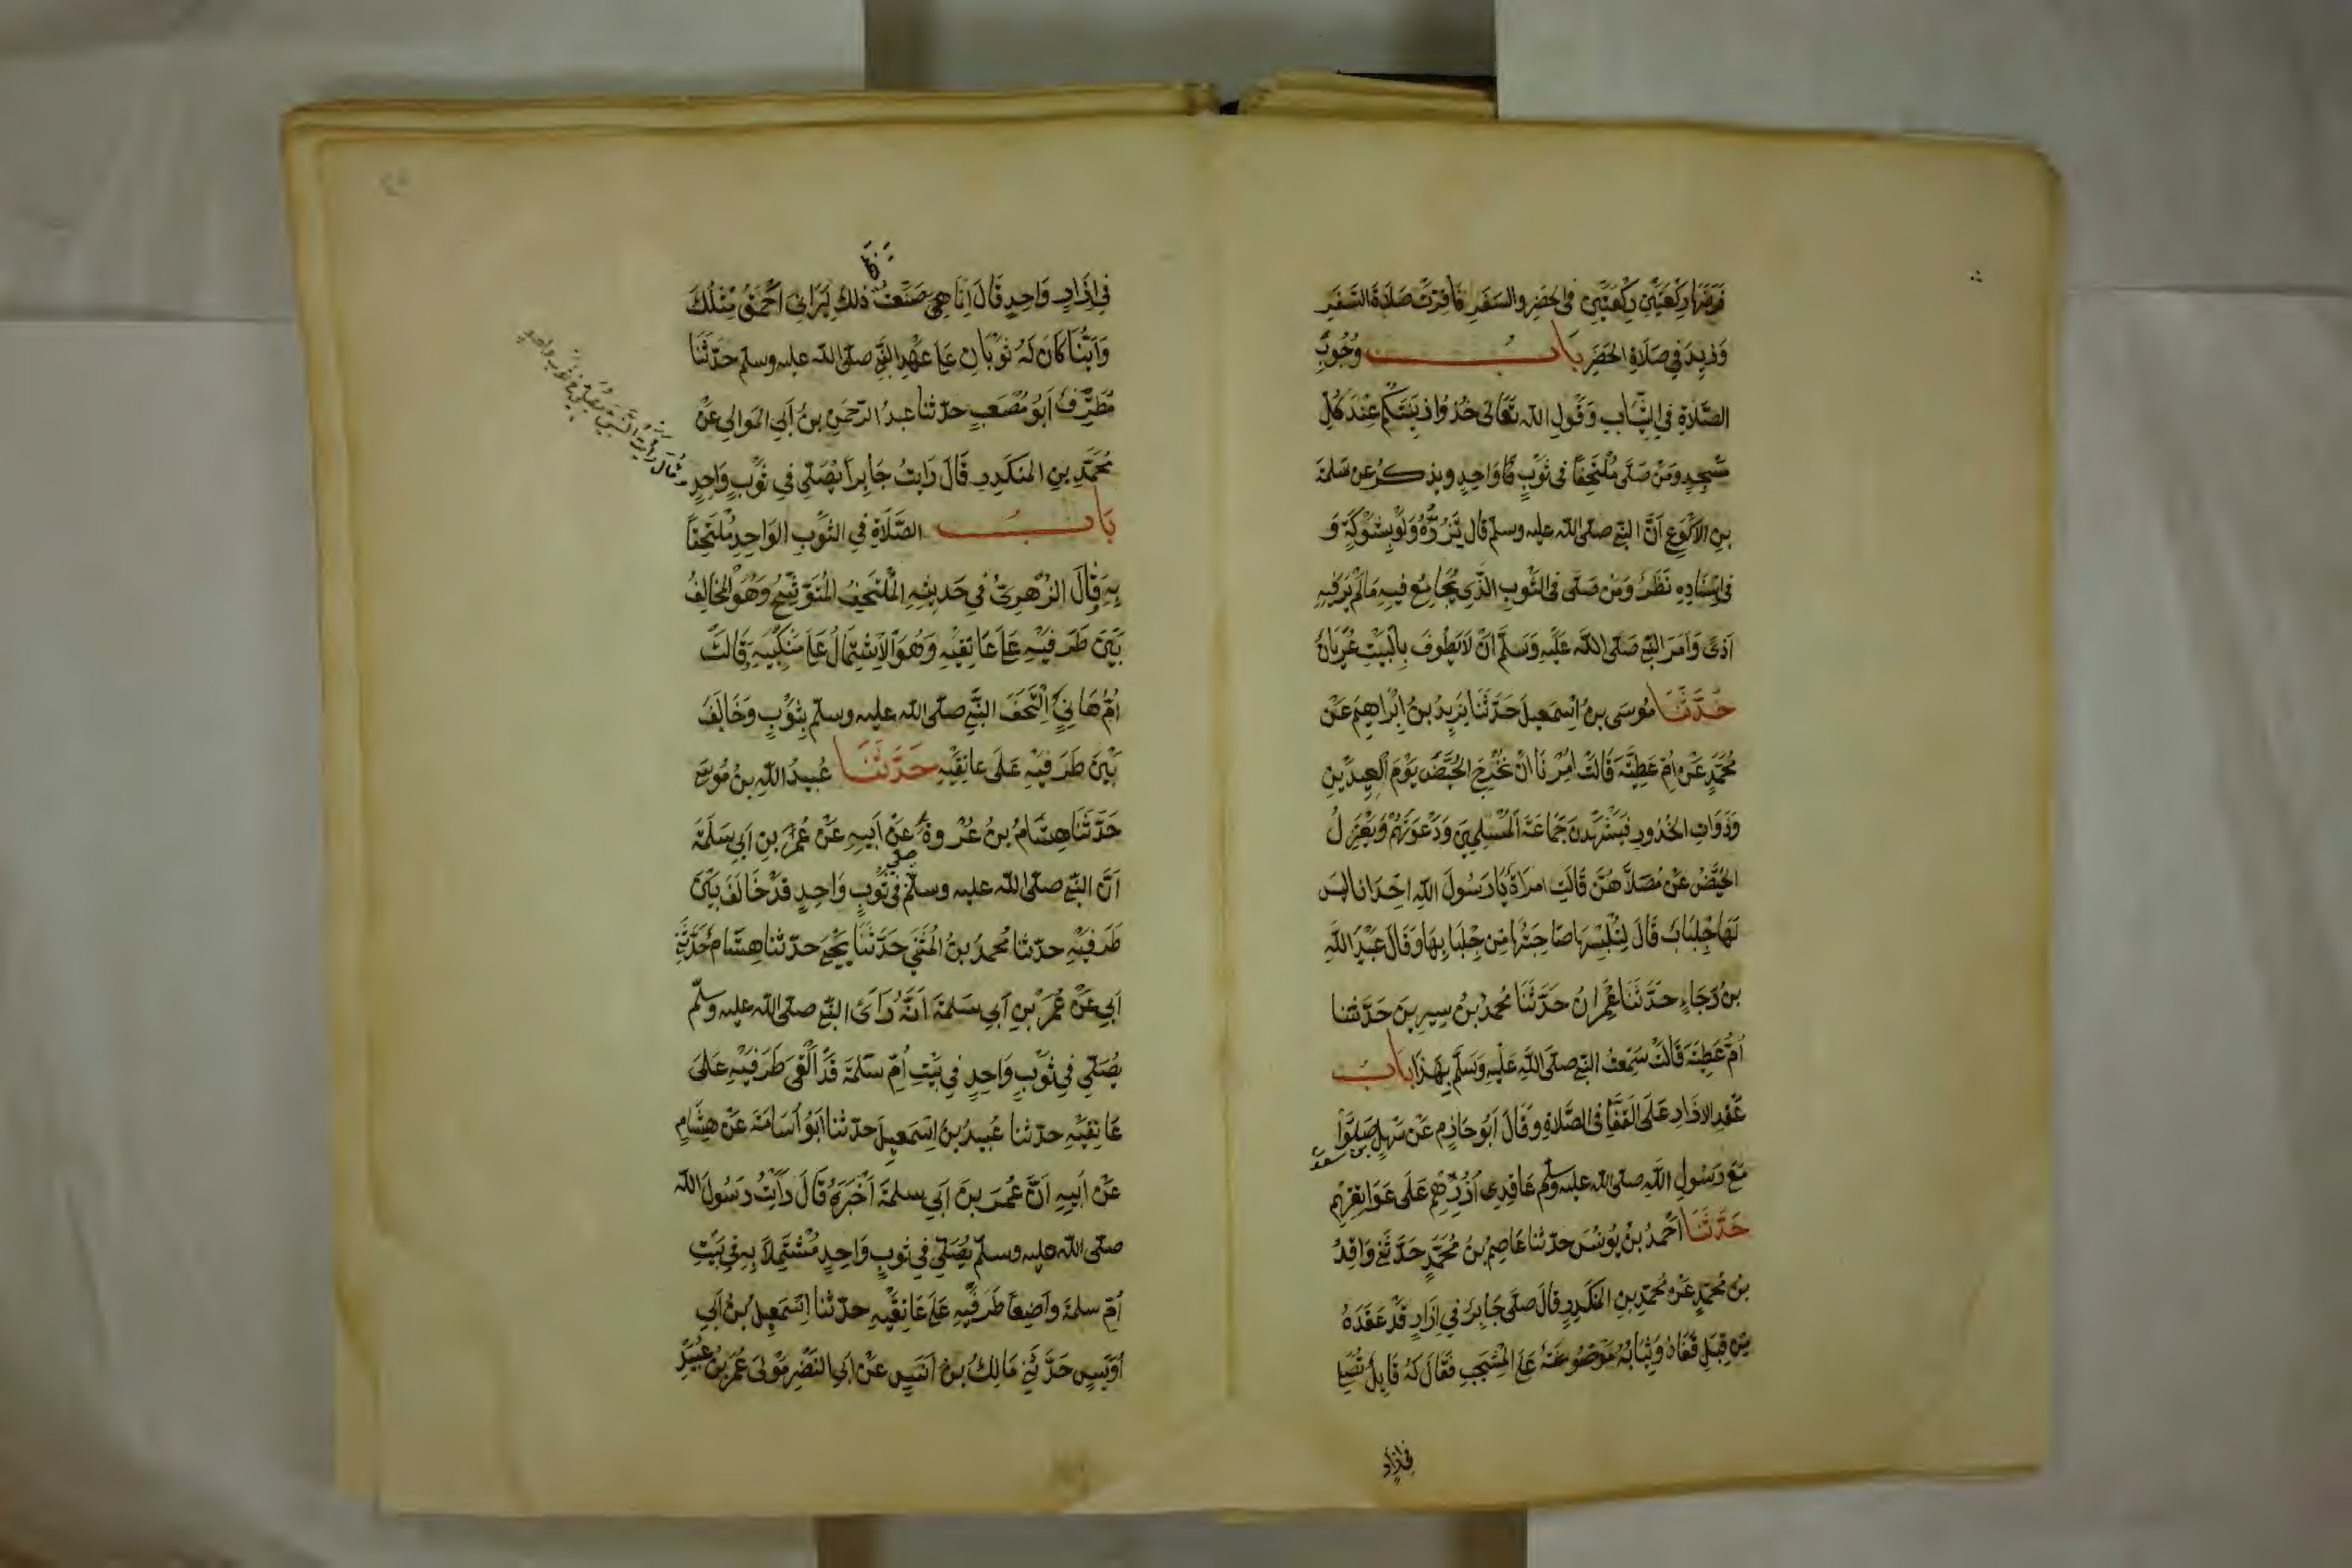 فَرَضَهَا رَكْعَتَيْنِ رَكْعَتَيْنِ فى الحَضَرِ والسَفَرِ فَاُقِرَّتْ صَلَاةُ السَّفَرِ
وَزِيدَ فِي صَلَاةِ الحَضَرِ بَابُ وُجُوْبِ
الصَّلَاةِ فى الثِّيَابِ وَقَوْلِ الله تَعَالى خُذُوا زِيْنَتَكُمْ عِنْدَ كُلِّ
مَسْجِدٍ وَمَنْ صَلَّى مُلْتَحِفًا فى ثَوْبٍ وَاحِدٍ ويذكر عن سَلمةَ
بنِ الاَكْوَعِ اَنَّ النبى صلى الله عليه وسلم قال يَزُرُّهُ وَلَوْ بِشَوْكَةٍ وَ
فى اِسْنَادِهِ نَظَرٌ وَمَن صَلَّى فى الثَّوْبِ الَّذِى يُجَامِعُ فِيهِ مَالَمْ يَرَ فِيهِ
اَذًى وَاَمَرَ النبى صَلَّى اللَّه عَلَيْهِ وَسَلَّمَ اَنْ لَا يَطُوفَ بِالْبَيْتِ عُرْيَانٌ
حَدَّثَنَا مُوسَى بنُ اِسْمَعِيلَ حَدَّثَنَا يَزِيدُ بنُ اِبْرَاهِيمَ عَنْ
مُحَمَّدٍ عَنْ اُمِّ عَطِيَّةَ قَالَتْ اُمِرْنَا اَنْ نُخْرِجَ الحُيَّضَ يَوْمَ الْعِيدَيْنِ
وَذَوَاتِ الخُدُورِ فَيَشْهَدْنَ جَمَاعَةَ المُسْلِمِينَ وَدَعْوَتَهُمْ وَيَعْتَزِلُ
الحُيَّضُ عَنْ مُصَلاَّهُنَّ قَالَتِ امْرَاَةٌ يَا رَسُولَ اللهِ اِحْدَانَا لَيْسَ
لَهَا جِلْبَابٌ قَالَ لِتُلْبِسْهَا صَاحِبَتُهَا مِنْ جِلْبَابِهَا وَقَالَ عَبْدُ اللَّهِ
بنُ رَجَاءٍ حَدَّثَنَا عِمْرَانُ حَدَّثَنَا مُحمدُ بْنُ سِيرِينَ حَدَّثتنا
اُمُّ عَطِيَّةَ قَالَتْ سَمِعْتُ النبى صلَّى اللَّهِ عَلَيْهِ وَسَلَّم بِهَذَا بَابُ
عَقْدِ الازَارِ عَلَى القَفَا فى الصَّلاةِ وَقَالَ اَبُو حَازِمٍ عَنْ سَهْلٍ صَلَّوْا
بن سعد
مَعَ رَسُولِ اللهِ صلى الله عليه وسلم عَاقِدِى اُزُرِهِمْ عَلَى عَوَاتِقِهِمْ
حَدَّثَنَا اَحْمَدُ بنُ يُونُسَ حدثنا عَاصِمُ بنُ مُحَمَّدٍ حَدَّثَنِى وَاقِدُ
بنُ مُحَمّدٍ عَنْ مُحَمّدِ بنِ المُنكَدِرِ قَالَ صَلَّى جَابِرٌ فى اِزَارٍ قَدْ عَقَدَهُ
مِن قِبَلِ قَفَاهُ وَثِيَابُهُ مَوْضُوعَةٌ عَلَى المِشْجَبِ فَقَالَ لَهُ قَايِلٌ تُصَلِّى
فى اِزار
فى اِزَارٍ وَاحِدٍ قَالَ اِنَّمَا صَنَعْتُ ذَلِكَ لِيَرَانِى اَحْمَقُ مِثْلُكَ
وَاَيُّنَا كَانَ لَهُ ثَوْبَانِ عَلَى عَهْدِ النبى صلى الله عليه وسلم حَدَّثَنَا
مُطَرِّفٌ اَبُو مُصْعَبٍ حدثنا عبدُ الرّحمَنِ بنُ أَبِي المَوالِى عَنْ
مُحَمَّدِ بنِ المنكَدِرِ قَالَ رَايتُ جَابِراً يُصَلِّى فى ثَوْبٍ وَاحِدٍ
وقال رايت النبى صلى الله عليه وسلم يصلى فى ثوب واحد
بَابُ الصَّلَاةِ فِي الثَّوْبِ الوَاحِدِ مُلتَحِفًا
بِهِ وَقَالَ الزُّهرِىُّ فِي حَدِيثِهِ المُلْتَحِفُ المُتَوَشِّحُ وَهُوَ المُخَالِفُ
بَيْنَ طَرَفَيْهِ عَلَى عَاتِقَيْهِ وَهُوَ الاشْتِمَالُ عَلَى مَنْكِبَيْهِ وَقَالَتْ
اُمُّ هَانِئٍ اِلْتَحَفَ النبى صلى الله عليه وسلم بِثَوْبٍ وَخَالَفَ
بَيْنَ طَرَفَيْهِ عَلَى عَاتِقَيْهِ حَدَّثَنَا عُبيدُ اللهِ بنُ مُوسَى
حَدّثَنَا هِشَامُ بنُ عُرْوَةَ عَنْ اَبيهِ عَنْ عُمَرَ بنِ اَبى سَلَمَةَ
اَنَّ النبى صلى الله عليه وسلم صلى فى ثَوْبٍ وَاحِدٍ قَدْ خَالَفَ بَيْنَ
طَرَفَيْهِ حدثنا مُحمدُ بنُ المُثَنَّى حَدَّثَنَا يَحْيَى حدثنا هِشَام حَدَّثَنِى
اَبِى عَنْ عُمَرَ بْنِ اَبِى سَلمَةَ اَنَّهُ رَاَى النبى صلى الله عليه وسلم
يُصَلِّى فى ثَوْبٍ وَاحِدٍ فِى بَيْتِ اُمِّ سَلَمَةَ قَدْ اَلْقَى طَرَفَيْهِ عَلَى
عَاتِقَيْهِ حدثنا عُبيدُ بنُ اِسْمَعِيلَ حدثنا اَبُو اُسَامَةَ عَنْ هِشَامٍ
عَنْ اَبِيهِ اَنَّ عُمَرَ بنَ اَبى سلمةَ اَخْبَرَهُ قَالَ رَاَيْتُ رَسُولَ الله
صلى الله عليه وسلم يُصَلِّى فى ثوبٍ وَاحِدٍ مُشْتَمِلاً بِهِ فِى بَيْتِ
اُمِّ سلمة واضِعًا طَرَفَيْهِ عَلَى عَاتِقَيْهِ حدثنا اِسْمَعِيلُ بنُ اَبِى
اُوَيْسٍ حَدَّثَنِى مَالِكُ بنُ اَنَسٍ عَنْ اَبِى النَّضْرِ مَوْلَى عُمَرَ بْنِ عُبَيْدِ